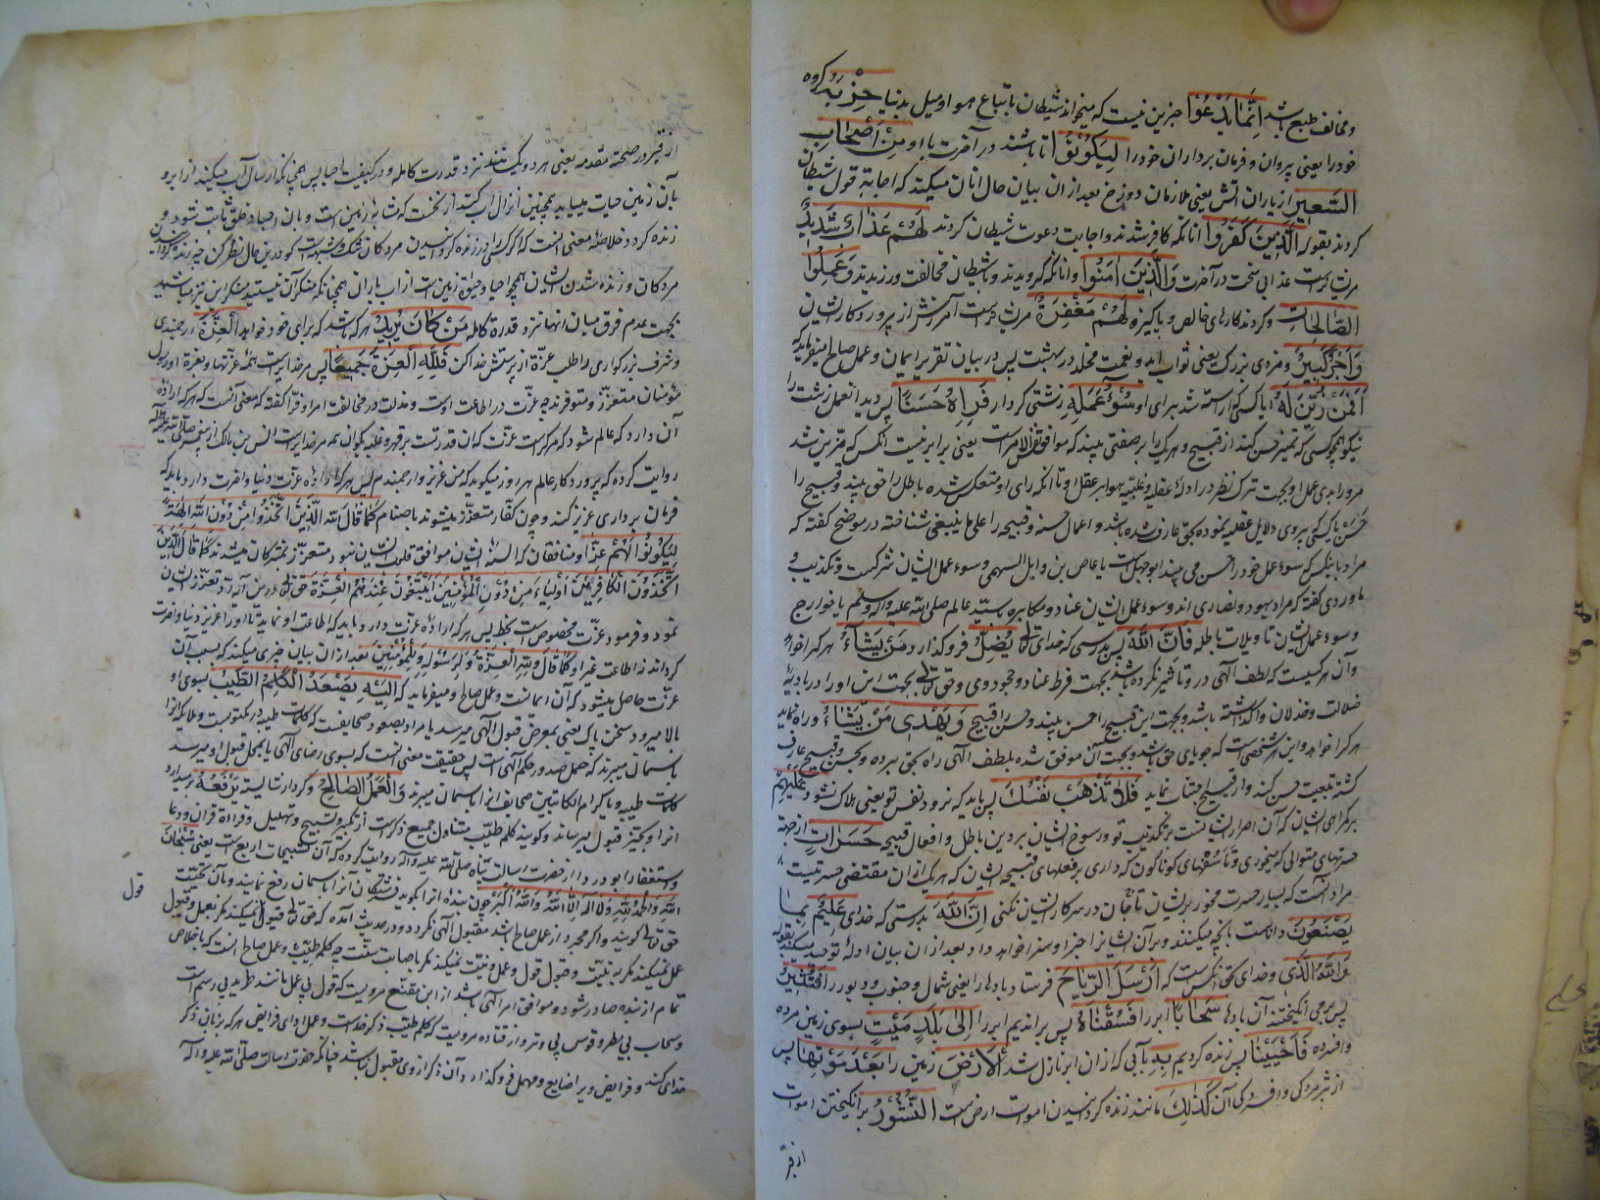 و مخالف طبع باشد إِنَّمَا يَدْعُوا جز این نیست که میخواند شیطان باتباع هوا و میل بدنیا حِزْبَهُ گروه
خود را یعنی پیروان و فرمان برداران خود را لِيَكُونُوا تا باشند در آخرت با او مِنْ أَصْحَابِ
السَّعِيرِ از یاران آتش یعنی ملازمان دوزخ بعد از ان بیان حال انان میکند که اجابة قول شیطان
کردند بقوله الَّذِينَ كَفَرُوا انانکه کافر شدند و اجابت دعوت شیطان کردند لَهُمْ عَذَابٌ شَدِيدٌ
مریشانراست عذابی سخت در آخرت وَالَّذِينَ آمَنُوا و انانکه گرویدند و با شیطان مخالفت ورزیدند وَعَمِلُوا
الصَّالِحَاتِ و کردند کارهای خالص و پاکیزه لَهُمْ مَغْفِرَةٌ مریشانراست آمرزش از پروردکارایشان
وَأَجْرٌ كَبِيرٌ و مزدی بزرک یعنی ثواب ابد و نعمت مخلد در بهشت پس در بیان تقریر ایمان و عمل صالح میفرماید که
أَفَمَنْ زُيِّنَ لَهُ آیا کسی که آراسته شد برای او سُوءُ عَمَلِهِ زشتی کردار فَرَآهُ حَسَنًا پس دید آن عمل زشت را
نیکو همچو کسی که تمیز حسن کند از قبیح و هر یک را بر صفتی بیند که موافق نفس الامر است یعنی برابر نیست آنکس که مزین شد
مر او را بدی عمل او بجهت ترک نظر در ادلهٔ عقلیه و غلبهٔ هوا بر عقل او تا آنکه رای او منعکس شده باطل را حق بیند و قبیح را
حسن با کسی که پیروی دلایل عقلیه نموده بحق عارف شده باشد و اعمال حسنه و قبیحه را علی ما ینبغی شناخته در موضح گفته که
مراد باینکس که سوء عمل خود را حسن می بیند ابوجهل است یا عاص بن وایل السهمی و سوء عمل ایشان شرکست و تکذیب و
ماوردی گفته که مراد یهود و نصاری اند و سوء عمل ایشان عناد و مکابره با سید عالم صلی الله علیه واله وسلم یا خوارج
و سوء عمل ایشان تاویلات باطله فَإِنَّ اللَّهَ پس بدرستی که خدای تعالی يُضِلُّ فرو کذارد مَنْ يَشَاءُ هر که را خواهد
و آن هر کسیست که لطف الهی در و تاثیر نکرده باشد بجهت فرط عناد و جحود وی و حق تعالی بجهت این او را در بادیهٔ
ضلالت و خذلان وا گذاشته باشد و بجهت این قبیح را حسن بیند و حسن را قبیح وَيَهْدِي مَنْ يَشَاءُ و راه نماید
هر که را خواهد و این شخصی است که جویای حق باشد و بجهت آن موفق شده بلطف الهی راه بحق برده و بحسن و قبیح عارف
گشته تبعیت حسن کند و از قبیح اجتناب نماید فَلَا تَذْهَبْ نَفْسُكَ پس باید که نرود نفس تو یعنی هلاک نشود عَلَيْهِمْ
بر گمراهی ایشان که آن اصرار ایشانست بر تکذیب تو و رسوخ ایشان بر دین باطل و افعال قبیحه حَسَرَاتٍ از جهة
حسرتهای متوالی که میخوری و تاسفهای گوناگون که داری بر فعلهای قبیحه ایشان که هر یک از ان مقتضی حسرتیست
مراد آنست که بسیار حسرت مخور بر ایشان تا جان در سر کار ایشان نکنی إِنَّ اللَّهَ بدرستی که خدای عَلِيمٌ بِمَا
يَصْنَعُونَ داناست بآنچه میکنند و بر آن ایشانرا جزا و سزا خواهد داد بعد از ان بیان ادلهٔ توحید میکند بقوله
وَاللَّهُ الَّذِي و خدای بحق آنکس است که أَرْسَلَ الرِّيَاحَ فرستاد بادها را یعنی شمال و جنوب و دبور را فَتُثِيرُ
پس بر می انگیختند آن بادها سَحَابًا ابر را فَسُقْنَاهُ پس براندیم ابر را إِلَى بَلَدٍ مَيِّتٍ بسوی زمین مرده
و افسرده فَأَحْيَيْنَا پس زنده کردیم بِهِ بآبی که از ان ابر نازل شد الْأَرْضَ زمین را بَعْدَ مَوْتِهَا پس
از پژمردکی و افسردگی آن كَذَلِكَ مانند زنده گردانیدن اموات ارض است النُّشُورُ برانگیختن اموات
از قبر
از قبر در صحت مقدمه یعنی هر دو یکسانند نزد قدرت کامله و در کیفیت احیا پس همچنانکه ارسال آب میکند از ابر و
بآن زمین حیات مییابد همچنین انزال آب کند از تحت که مشابهٔ زمین است و بان اجساد خلق ثابت شود و
زنده گردد خلاصهٔ معنی آنست که اگر کسی را در زنده گردانیدن مردکان شک و شبهه است گو درین حال نظر کن چه زنده گردانیدن
مردکان و زنده شدن ایشان همچو احیا و حیوة زمین است از آب باران همچنانکه منکر آن نیستید منکر این نیز مباشید
بجهت عدم فرق میان انها نزد قدرة کامله مَنْ كَانَ يُرِيدُ هر که باشد که برای خود خواهد الْعِزَّةَ ارجمندی
و شرف بزرکواری را طلب عزة از پرستش خدا کن فَلِلَّهِ الْعِزَّةُ جَمِيعًا پس مر خدایراست همهٔ عزتها و بعزة او رسول
مؤمنان متعزز و متوفرند چه عزت در اطاعت اوست و مذلت در مخالفت امر او فرا گفته که معنی آنست که هر که ارادهٔ
آن دارد که عالم شود که مر کراست عزت که ان قدرتست بر قهر و غلبه بگو ان همه مر خدایراست انس بن مالک از پیغمبر صلی الله علیه واله
روایت کرده که پروردکار عالم هر روز میکوید که من عزیز و ارجمندم پس هر که ارادهٔ عزت دنیا و آخرت دارد باید که
فرمان برداری عزیز کند و چون کفار متعزز میشوند باصنام كَمَا قَالَ اللَّه الَّذِينَ اتَّخَذُوا مِنْ دُونِ اللَّهِ آلِهَةً
لِيَكُونُوا لَهُمْ عِزًّا و منافقان که السنهٔ ایشان موافق قلوب ایشان نبود متعزز بمشرکان میشدند كَمَا قَالَ الَّذِينَ
يَتَّخِذُونَ الْكَافِرِينَ أَوْلِيَاءَ مِنْ دُونِ الْمُؤْمِنِينَ أَيَبْتَغُونَ عِنْدَهُمُ الْعِزَّةَ حق تعالی درین آیه رد تعزز ایشان
نمود و فرمود عزت مخصوص است بخدا پس هر که ارادهٔ عزت دارد باید که اطاعت او نماید تا او را عزیز دنیا و آخرت
گرداند نه اطاعت غیر او كَمَا قَالَ وَلِلَّهِ الْعِزَّةُ وَلِرَسُولِهِ وَلِلْمُؤْمِنِينَ بعد از ان بیان چیزی میکند که بسبب آن
عزت حاصل میشود که آن ایمانست و عمل صالح و میفرماید که إِلَيْهِ يَصْعَدُ الْكَلِمُ الطَّيِّبُ بسوی او
بالا میرود سخن پاک یعنی بمعرض قبول الهی میرسد یا مراد بصعود صحایفست که کلمات طیبه در او مکتوبست و ملائکه انرا
باسمان میبرند که محل صدور حکم الهی است پس حقیقت معنی آنست که بسوی رضای الهی یا بمحل قبول او میرسد
کلمات طیبه و یا کرام الکاتبین صحایف انرا باسمان میبرند وَالْعَمَلُ الصَّالِحُ و کردار شایسته يَرْفَعُهُ بر میدارد
انرا و بحیز قبول میرساند و گویند کلم طیب متناول جمیع ذکر است از تکبیر و تسبیح و تهلیل و قراءة قران و دعا
و استغفار ابو دردا از حضرت رسالت پناه صلی الله علیه واله روایت کرده که آن تسبیحات اربع است یعنی سُبْحَانَ
اللَّهِ وَالْحَمْدُ لِلَّهِ وَلَا إِلَهَ إِلَّا اللَّهُ وَاللَّهُ أَكْبَرُ چون بنده انرا بگوید فرشتکان آنرا باسمان رفع نمایند و بآن تحیت
حق تعالی گویند و اگر مجرد از عمل صالح باشد مقبول الهی نگردد و در حدیث آمده که حق تعالی قبول نمیکند مگر بعمل و قبول
قول
عمل نمیکند مگر به نیت و قبول قول و عمل و نیت نمیکند مگر باصابت سنت چه کلم طیب و عمل صالح آنست که باخلاص
تمام از بنده صادر شود و موافق امر الهی باشد از ابن مقنع مرویست که قول بی عمل مانند طرید بی رسم است
و سحاب بی مطر و قوس بی وتر و از قتاده مرویست که کلم طیب ذکر خداست و عمل ادای فرائض هر که بزبان ذکر
خدای کند و فرایض ویرا ضایع و مهمل فرو گذارد آن ذکر از وی مقبول نباشد چنانکه حضرت رسالت صلی الله علیه واله